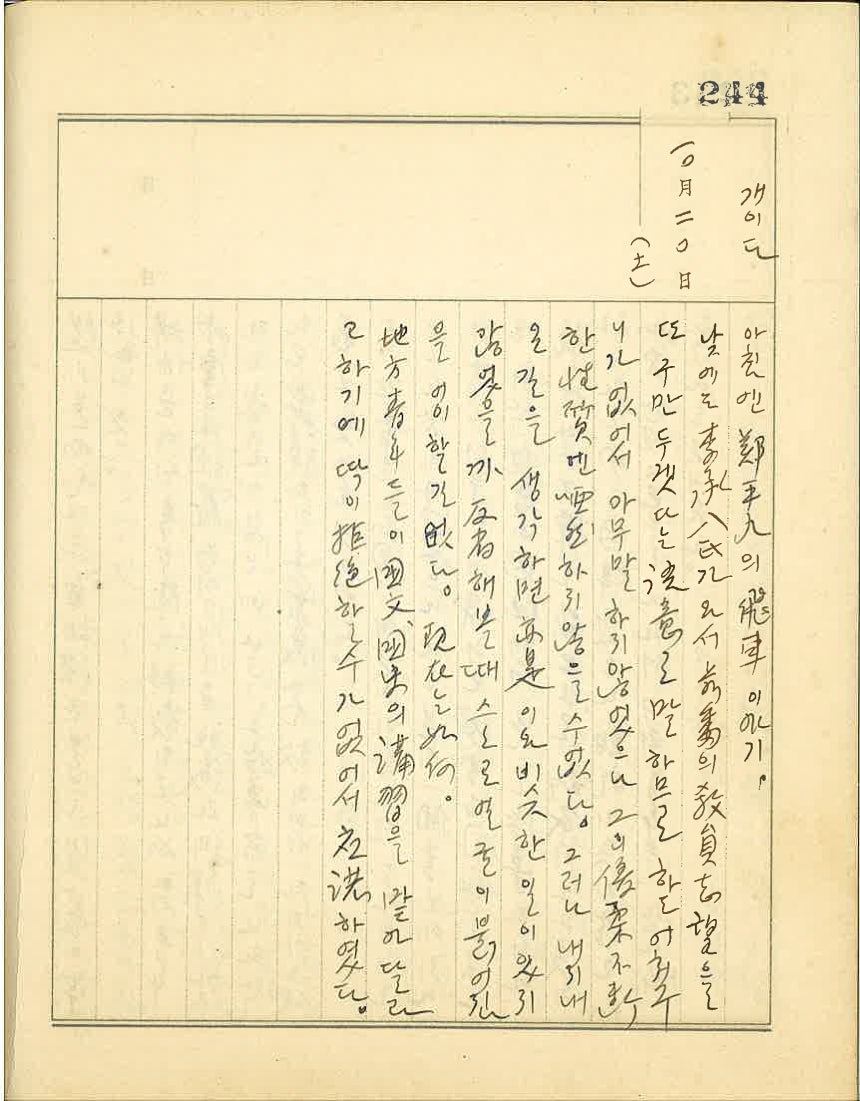 244
개이다
一〇月二〇日
(土)
아침엔 鄭平九의 飛車 이야기.
낮에도 李承八氏가 와서 前番의 敎員志望을
또 구만두겟다는 意로 말함으로 하도 어처구
니가 없어서 아무말 하지않엇으나 그의 優柔不斷
한 性質엔 啞然하지않을수없다. 그러나 내지내
온 길을 생각하면 亦是 이와 비슷한 일이 있지
않엇을까. 反省해볼때 스스로 얼굴이 붉어짐
을 어이할길없다. 現在는 如何.
地方靑年들이 國文, 國史의 講習을 맡아달라
고 하기에 딱이 拒絶할수가없어서 承諾하였다.